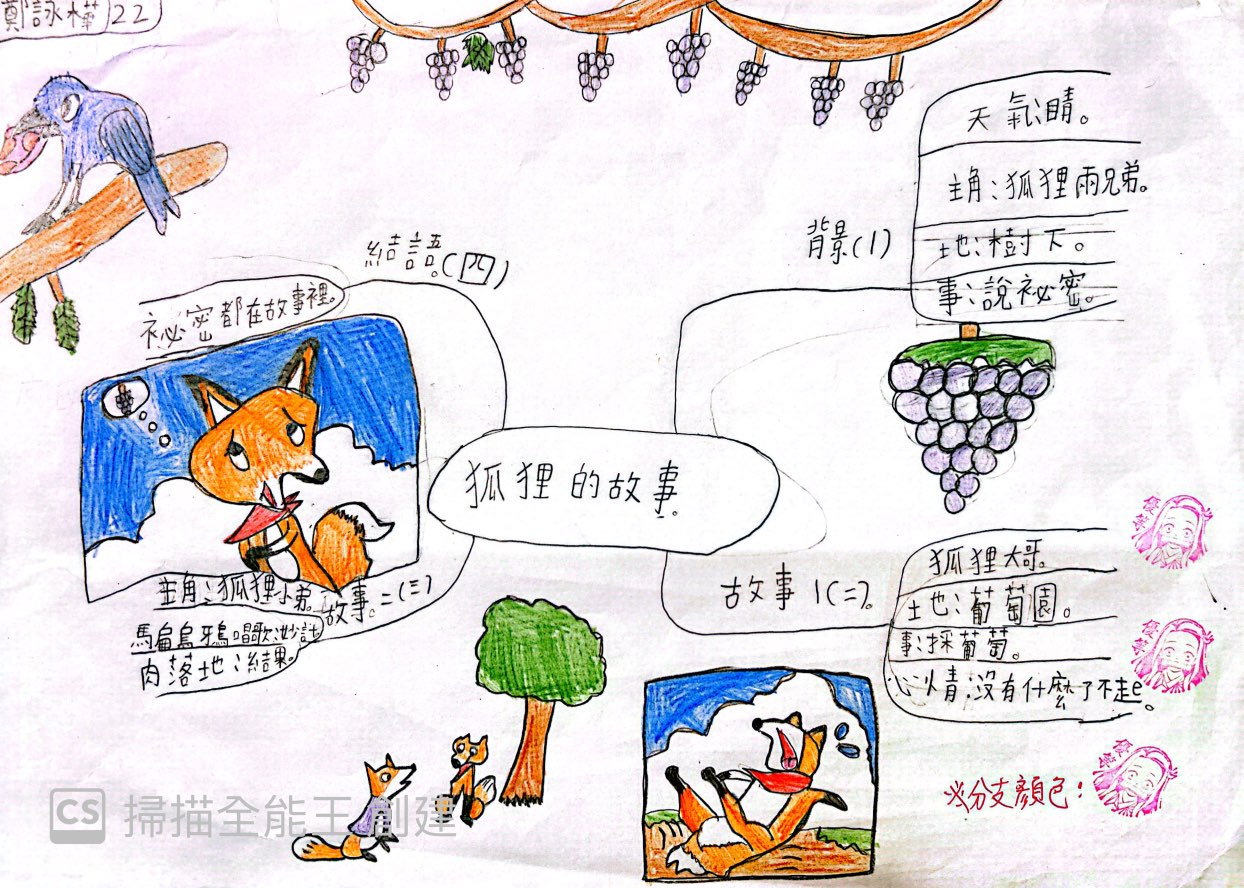 鄭詠樺 22
天氣:晴。
主角:狐狸兩兄弟。
背景(1)
地:樹下。
事:說祕密。
結語。(四)
祕密都在故事裡。
狐狸的故事。
主角:狐狸小弟。
故事。二(三)
騙烏鴉唱歌:妙計
肉落地:結果。
故事1(二)。
狐狸大哥。
地:葡萄園。
事:採葡萄。
心情:沒有什麼了不起。
優等
優等
優等
分支顏色:
CS 掃描全能王 創建